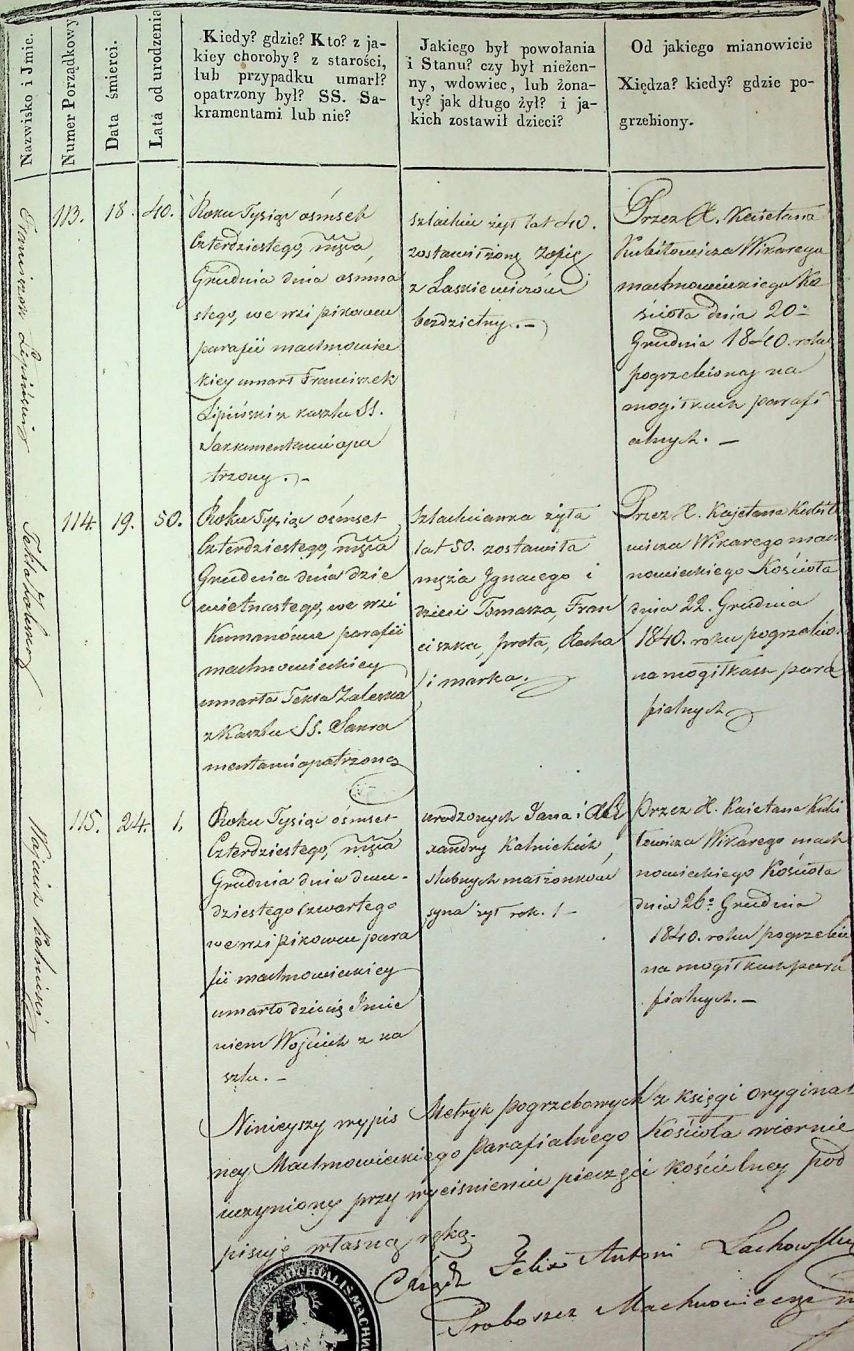 Nazwisko i Jmie.
Numer Porządkowy
Data śmierci.
Lata od urodzenia
Kiedy? gdzie? Kto? z ja-
kiey choroby? z starości,
lub przypadku umarł?
opatrzony był? SS. Sa-
kramentami lub nie?
Jakiego był powołania
i Stanu? czy był nieżen-
ny, wdowiec, lub żona-
ty? jak długo żył? i ja-
kich zostawił dzieci?
Od jakiego mianowicie
Xiędza? kiedy? gdzie po-
grzebiony.
Franciszek Lipiński
113.
18.
40.
Roku Tysiąc ośmset
Czterdziestego, mca
Grudnia dnia osmna
stego, we wsi pikowcu
parafii machnowiec
kiey umarł Franciszek
Lipiński z kaszlu SS.
Sakramentami opa
trzony. –
szlachcic żył lat 40.
zostawił żonę Zofię
z Laskiewiczow
bezdzietny. –
Przez X. Kaietana
Kubiłowicza Wikarego
machnowieckiego Ko
ścioła dnia 20=
Grudnia 1840. roku
pogrzebiony na
mogiłkach parafi
alnych. –
Tekla Zaleska
114.
19.
50.
Roku Tysiąc ośmset
Czterdziestego, mca
Grudnia dnia dzie
wietnastego, we wsi
Kumanowce parafii
machnowieckiey
umarła Tekla Zaleska
z Kaszlu SS. Sakra
mentami opatrzona
Szlachcianka żyła
lat 50. zostawiła
męża Ignacego i
dzieci Tomasza, Fran
ciszka, prota, Rocha
i marka.
Przez X. Kajetana Kubiło
wicza Wikarego mach
nowieckiego Kościoła
dnia 22. Grudnia
1840. roku pogrzebio.
na mogiłkach para
fialnych
Wojciech Kalnicki
115.
24.
1.
Roku Tysiąc ośmset
Czterdziestego, mca
Grudnia dnia dwu-
dziestego czwartego
we wsi pikowcu para
fii machnowieckiey
umarło dziecię Jmie
niem Wojciech z ka
szlu. –
urodzonych Jana i Alex
xandry Kalnickich
slubnych małżonkow
syn żył rok. 1 –
Przez X. Kaietana Kubi
łowicza Wikarego mach
nowieckiego Kościoła
dnia 26= Grudnia
1840. roku pogrzebio
na mogiłkach para
fialnych. –
Ninieyszy wypis Metryk pogrzebowych z księgi oryginal
ney Machnowieckiego Parafialnego Kościoła wiernie
uczyniony przy wyciśnieniu pieczęci kościelney pod
pisuję własną ręką.
Xiądz Felix Antoni Lachowski
Proboszcz Machnowiecki